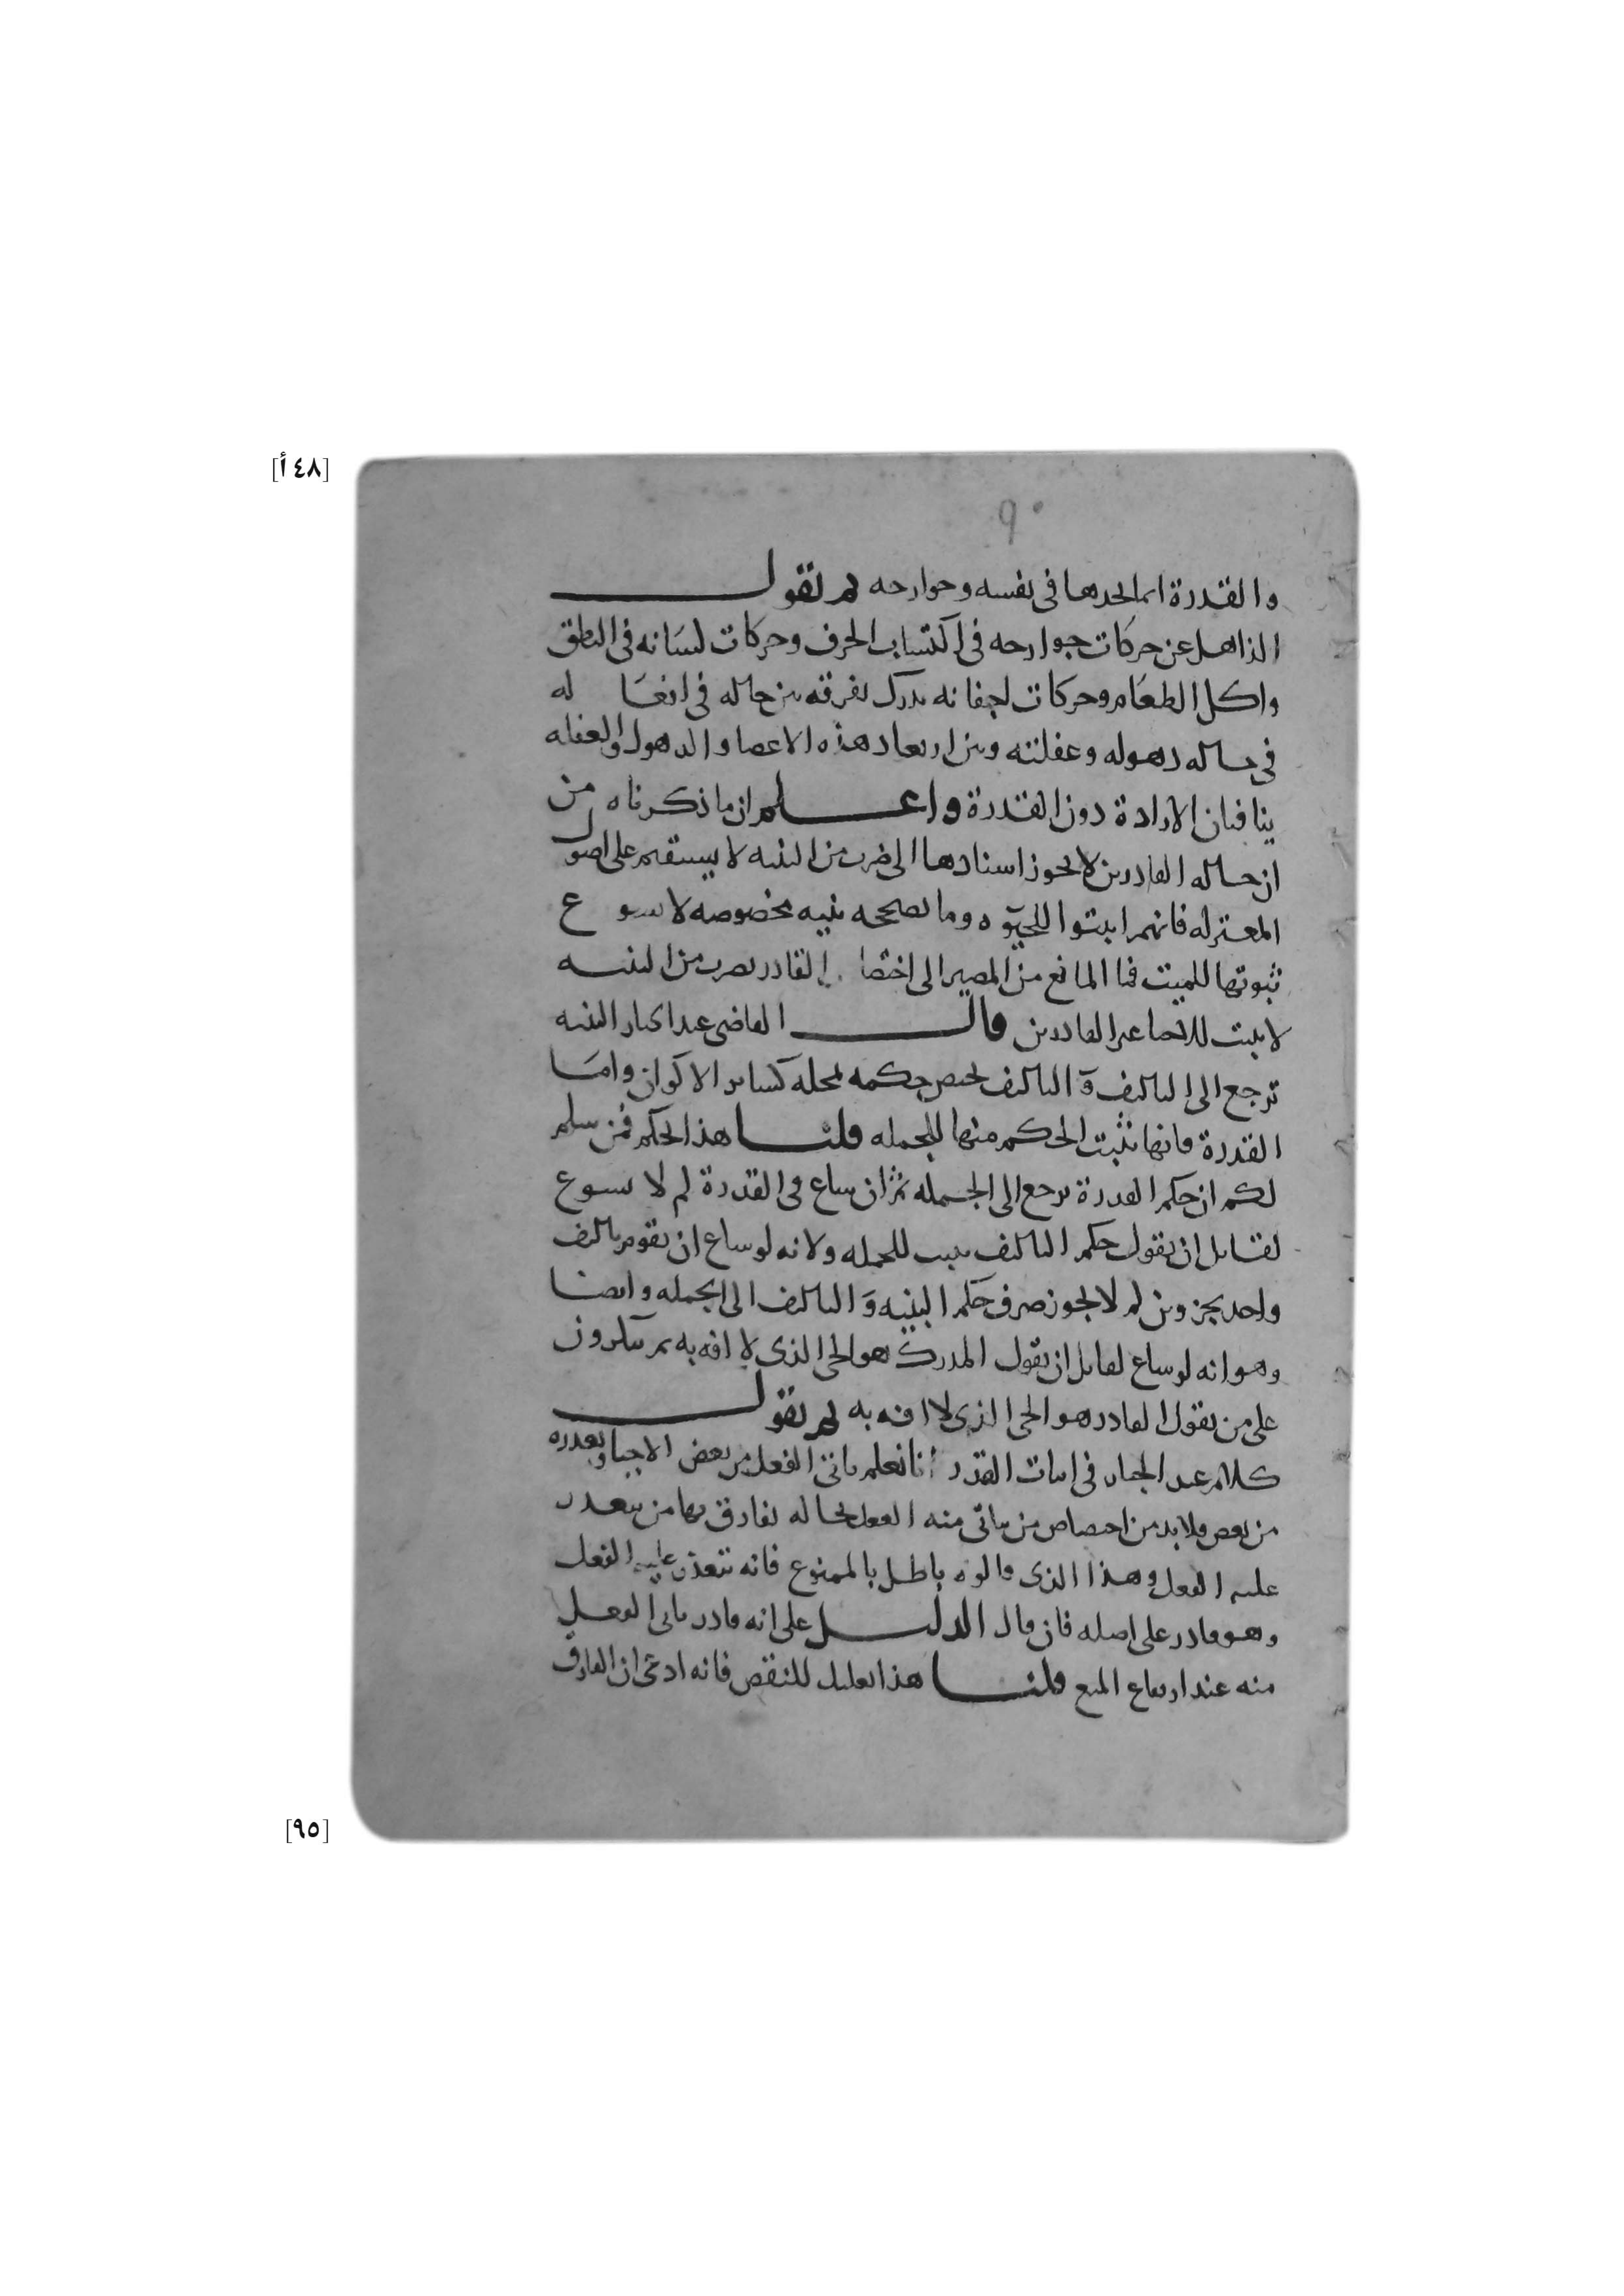 [٤٨ أ]
٩٠
والقدرة انما يجدها في نفسه وجوارحه ثم نقول
الذاهل عن حركات جوارحه في اكتساب الحرف وحركات لسانه في النطق
واكل الطعام وحركات اجفانه يدرك تفرقه بين حاله في افعا له
في حاله ذهوله وغفلته وبين ارتعاد هذه الاعضا والذهول والغفله
ينافيان الارادة دون القدرة واعلم ان ما ذكرناه من
ان حاله القادرين لا يجوز اسنادها الى ضرب من البنيه لا يستقيم على اصول
المعتزله فانهم اثبتوا للحيوه وما تصححه بنيه مخصوصه لا يسوغ
ثبوتها للميت فما المانع من المصير الى اختصا القادر بضرب من البنيه
لا يثبت للاحيا غير القادرين قال القاضي عبد الجبار البنيه
ترجع الى التاليف و التاليف يختص حكمه بمحله كساير الاكوان واما
القدرة فانها تثبت الحكم منها للجمله قلنا هذا الحكم فمن سلم
لكم ان حكم القدرة يرجع الى الجمله ثم ان ساغ في القدرة لم لا يسوغ
لقايل ان يقول حكم التاليف يثبت للجمله ولانه لو ساغ ان يقوم تاليف
واحد بجزوين لم لا يجوز صرف حكم البنيه و التاليف الى الجمله وايضا
وهو انه لو ساغ لقايل ان يقول المدرك هو الحي الذي لا افه به بم تنكرون
على من يقول القادر هو الحي الذي لا افه به ثم نقول
كلام عبد الجبار في اثبات القدر انا نعلم تاتي الفعل من بعض الاحيا وتعذره
من بعض ولا بد من اختصاص من يتاتى منه الفعل بحاله يفارق بها من يتعذر
عليه الفعل وهذا الذي قالوه باطل بالممنوع فانه يتعذر عليه الفعل
وهو قادر على اصله فان قال الدليل على انه قادر تاتي الفعل
منه عند ارتفاع المنع قلنا هذا تعليل للنقض فانه ادعى ان الفارق
[٩٥]